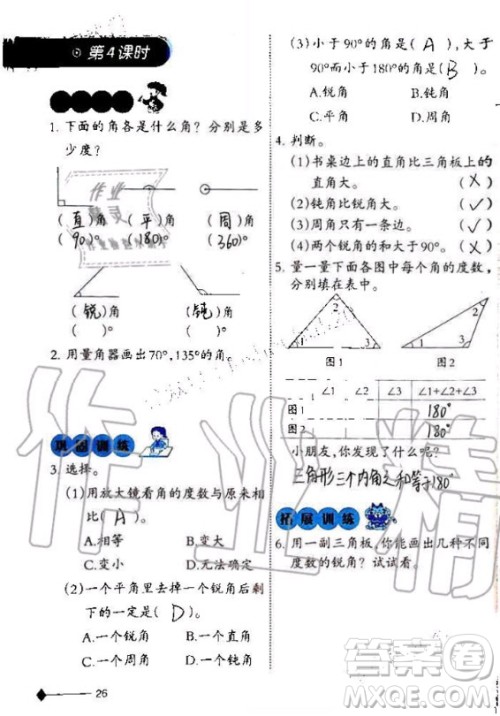 第4课时
1. 下面的角各是什么角？分别是多
少度？
(直)角 (平)角 (周)角
(90)° (180)° (360)°
(锐)角 (钝)角
( )° ( )°
2. 用量角器画出70°,135°的角。
巩固训练
3. 选择。
(1)用放大镜看角的度数与原来相
比( A )。
A.相等 B.变大
C.变小 D.无法确定
(2)一个平角里去掉一个锐角后剩
下的一定是( D )。
A.一个锐角 B.一个直角
C.一个平角 D.一个钝角
26
(3)小于90°的角是( A ),大于
90°而小于180°的角是( B )。
A.锐角 B.钝角
C.平角 D.周角
4. 判断。
(1)书桌边上的直角比三角板上的
直角大。 (×)
(2)钝角比锐角大。 (✓)
(3)周角只有一条边。 (×)
(4)两个锐角的和大于90°。 (×)
5. 量一量下面各图中每个角的度数，
分别填在表中。
1 2 3
1 2 3
图1 图2
∠1 ∠2 ∠3 ∠1+∠2+∠3
图1 180°
图2 180°
小朋友，你发现了什么呢？
三角形三个内角之和等于180°
拓展训练
6. 用一副三角板，你能画出几种不同
度数的锐角？试试看。
作业精灵
作业精
答案圈
MXQE.COM